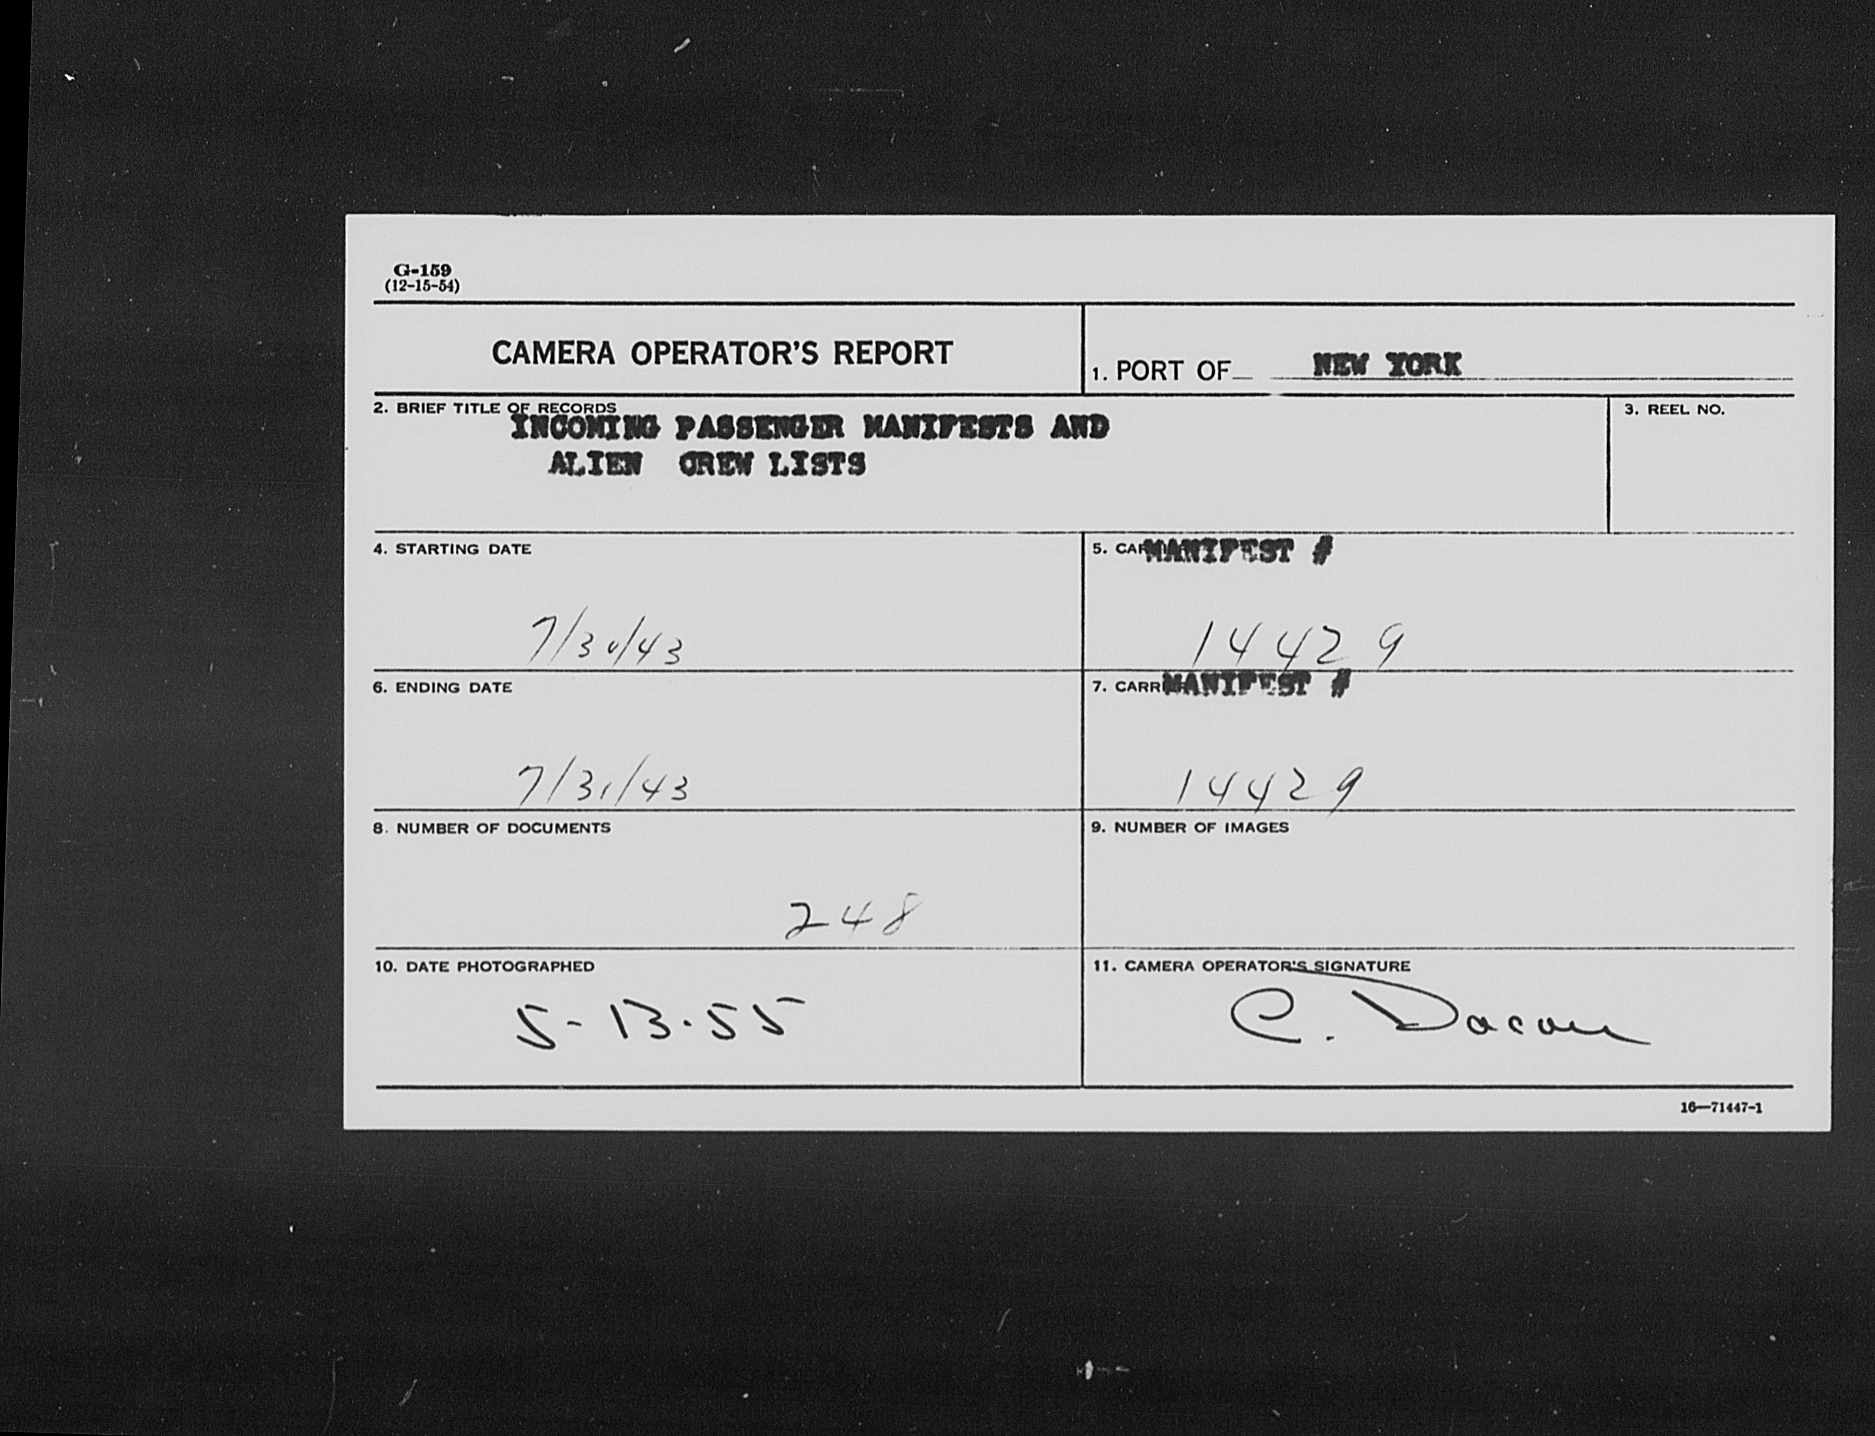 G-159
(12-15-54)
CAMERA OPERATOR'S REPORT
1. PORT OF NEW YORK
2. BRIEF TITLE OF RECORDS
INCOMING PASSENGER MANIFESTS AND
ALIEN CREW LISTS
3. REEL NO.
4. STARTING DATE
7/30/43
5. MANIFEST #
14429
6. ENDING DATE
7/31/43
7. MANIFEST #
14429
8. NUMBER OF DOCUMENTS
248
9. NUMBER OF IMAGES
10. DATE PHOTOGRAPHED
5-13-55
11. CAMERA OPERATOR'S SIGNATURE
C.
16—71447-1